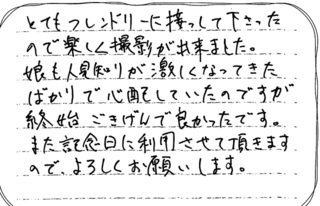 とてもフレンドリーに接っして下さった
ので楽しく撮影が出来ました。
娘も人見知りが激しくなってきた
ばかりで心配していたのですが
終始ごきげんで良かったです。
また記念日に利用させて頂きます
ので、よろしくお願いします。